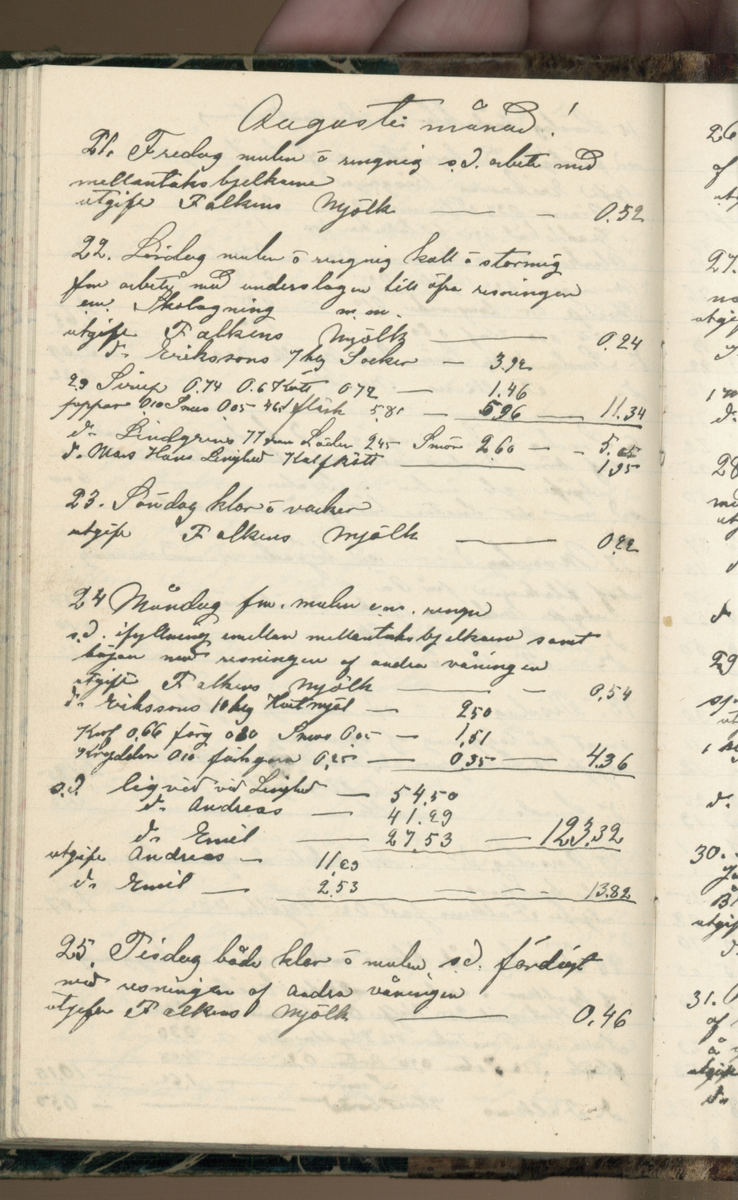 Augusti månad!
21. Fredag mulen o ringnig s.d. arbete med
mellantaksbjelkarne
utgift Falkens Mjölk — - 0.52
22. Lördag mulen o ringnig kall o stormig
fm arbete med underslagen till öfra resningen
em. Skolagning m.m.
utgift Falkens Mjölk — 0.24
d:o Erikssons 7 kg Socker — 3.92
Sirup 0.74 0.72 — 1.46
peppar 0.10 Snus 0.05 fläsk 5.81 — 5.96 — 11.34
d:o Lindgrins Läder 2.45 Smör 2.60 — - 5.05
d:o Mats Hans Linghed Kalfkött — 1.95
23. Söndag klar o vacker
utgift Falkens Mjölk — 0.22
24 Måndag fm. mulen em. ringn
s.d. ifyllning emellan mellantaksbjelkarne samt
började med resningen af andra våningen
utgift Falkens Mjölk — - 0.54
d:o Erikssons 10 kg Hvetmjöl — 2.50
Korf 0.66 färg 0.80 Snus 0.05 — 1.51
Kryddor 0.10 0.25 — 0.35 — 4.36
s.d. liqvid vid Linghed — 54.50
d:o Andreas — 41.29
d:o Emil — 27.53 — 123.32
utgift Andreas — 11.29
d:o Emil — 2.53 — 13.82
25. Tisdag både klar o mulen s.d. färdigt
med resningen af andra våningen
utgifter Falkens Mjölk — 0.46
26
af
27.
d:o
28
29
30.
d:o
31.
af
d:o